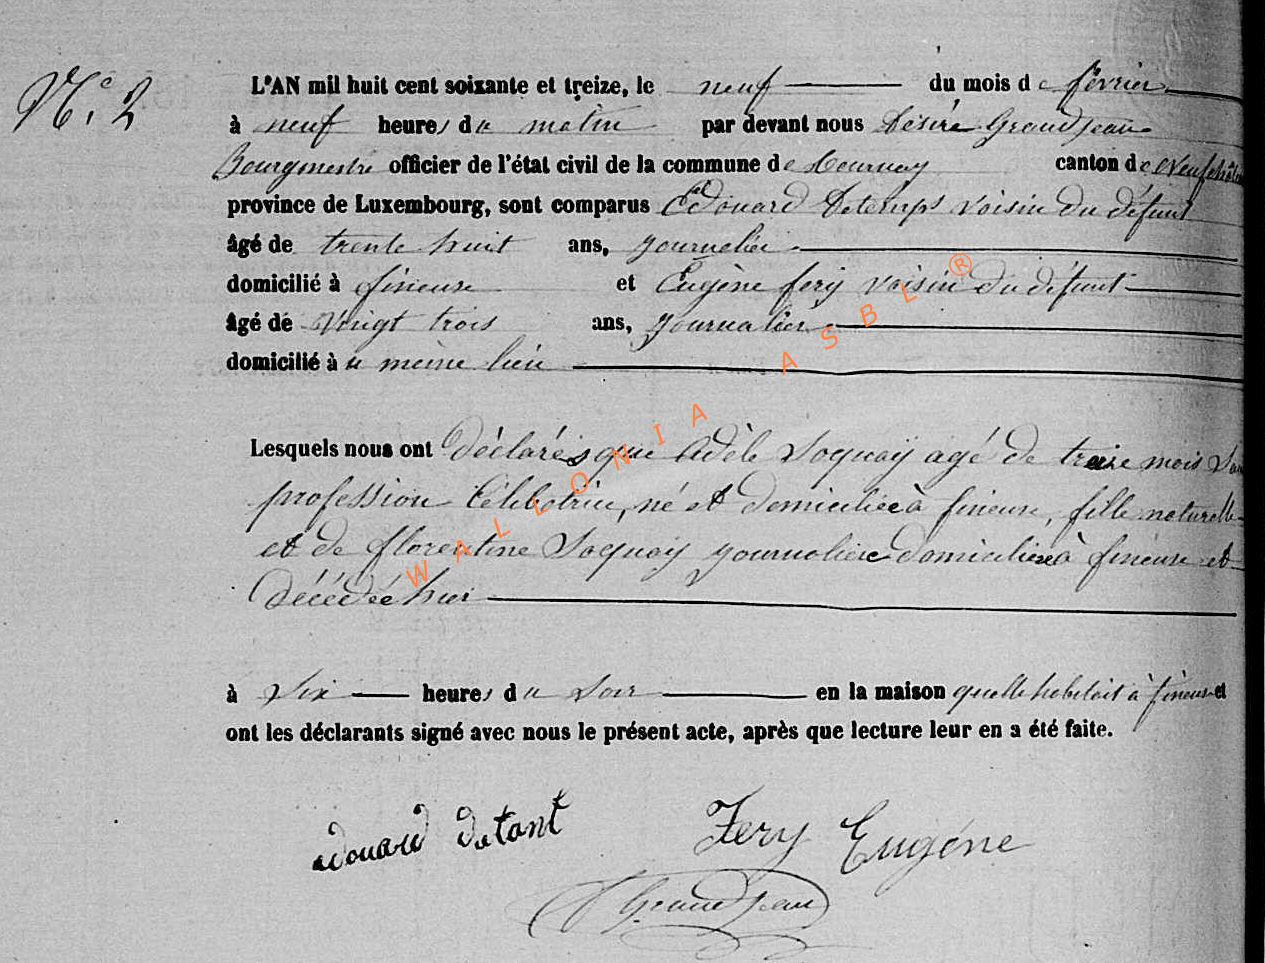 N° 2
L'AN mil huit cent soixante et treize, le neuf du mois de février
à neuf heures du matin par devant nous Désiré Grandjean
Bourgmestre officier de l'état civil de la commune de Tournay canton de Neufchâteau
province de Luxembourg, sont comparus Edouard Detemps voisin du défunt
âgé de trente huit ans, journalier
domicilié à fineuse et Eugène fery voisin du défunt
âgé de vingt trois ans, journalier
domicilié à u même lieu
Lesquels nous ont déclarés que Adèle Soquay agé de treize mois San
profession Célibatrice, né et domiciliée à fineuse, fille naturelle
et de florentine Soquay journalière domicilière à fineuse et
décédée hier
à Six heures du Soir en la maison quelle habitait à fineuse et
ont les déclarants signé avec nous le présent acte, après que lecture leur en a été faite.
edouard detant Fery Eugéne
Grandjean
WALLONIA ASBL ®